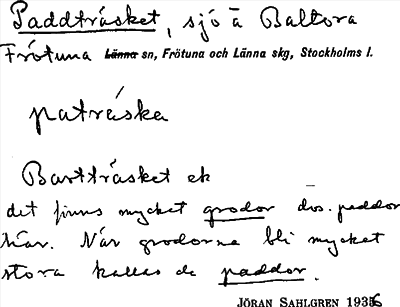 Paddträsket, sjö å Baltora
Frötuna Länna sn, Frötuna och Länna skg, Stockholms l.
patráska
Bartträsket ek
det finns mycket grodor dvs. paddor
här. När grodorna bli mycket
stora kallas de paddor.
JÖRAN SAHLGREN 1936